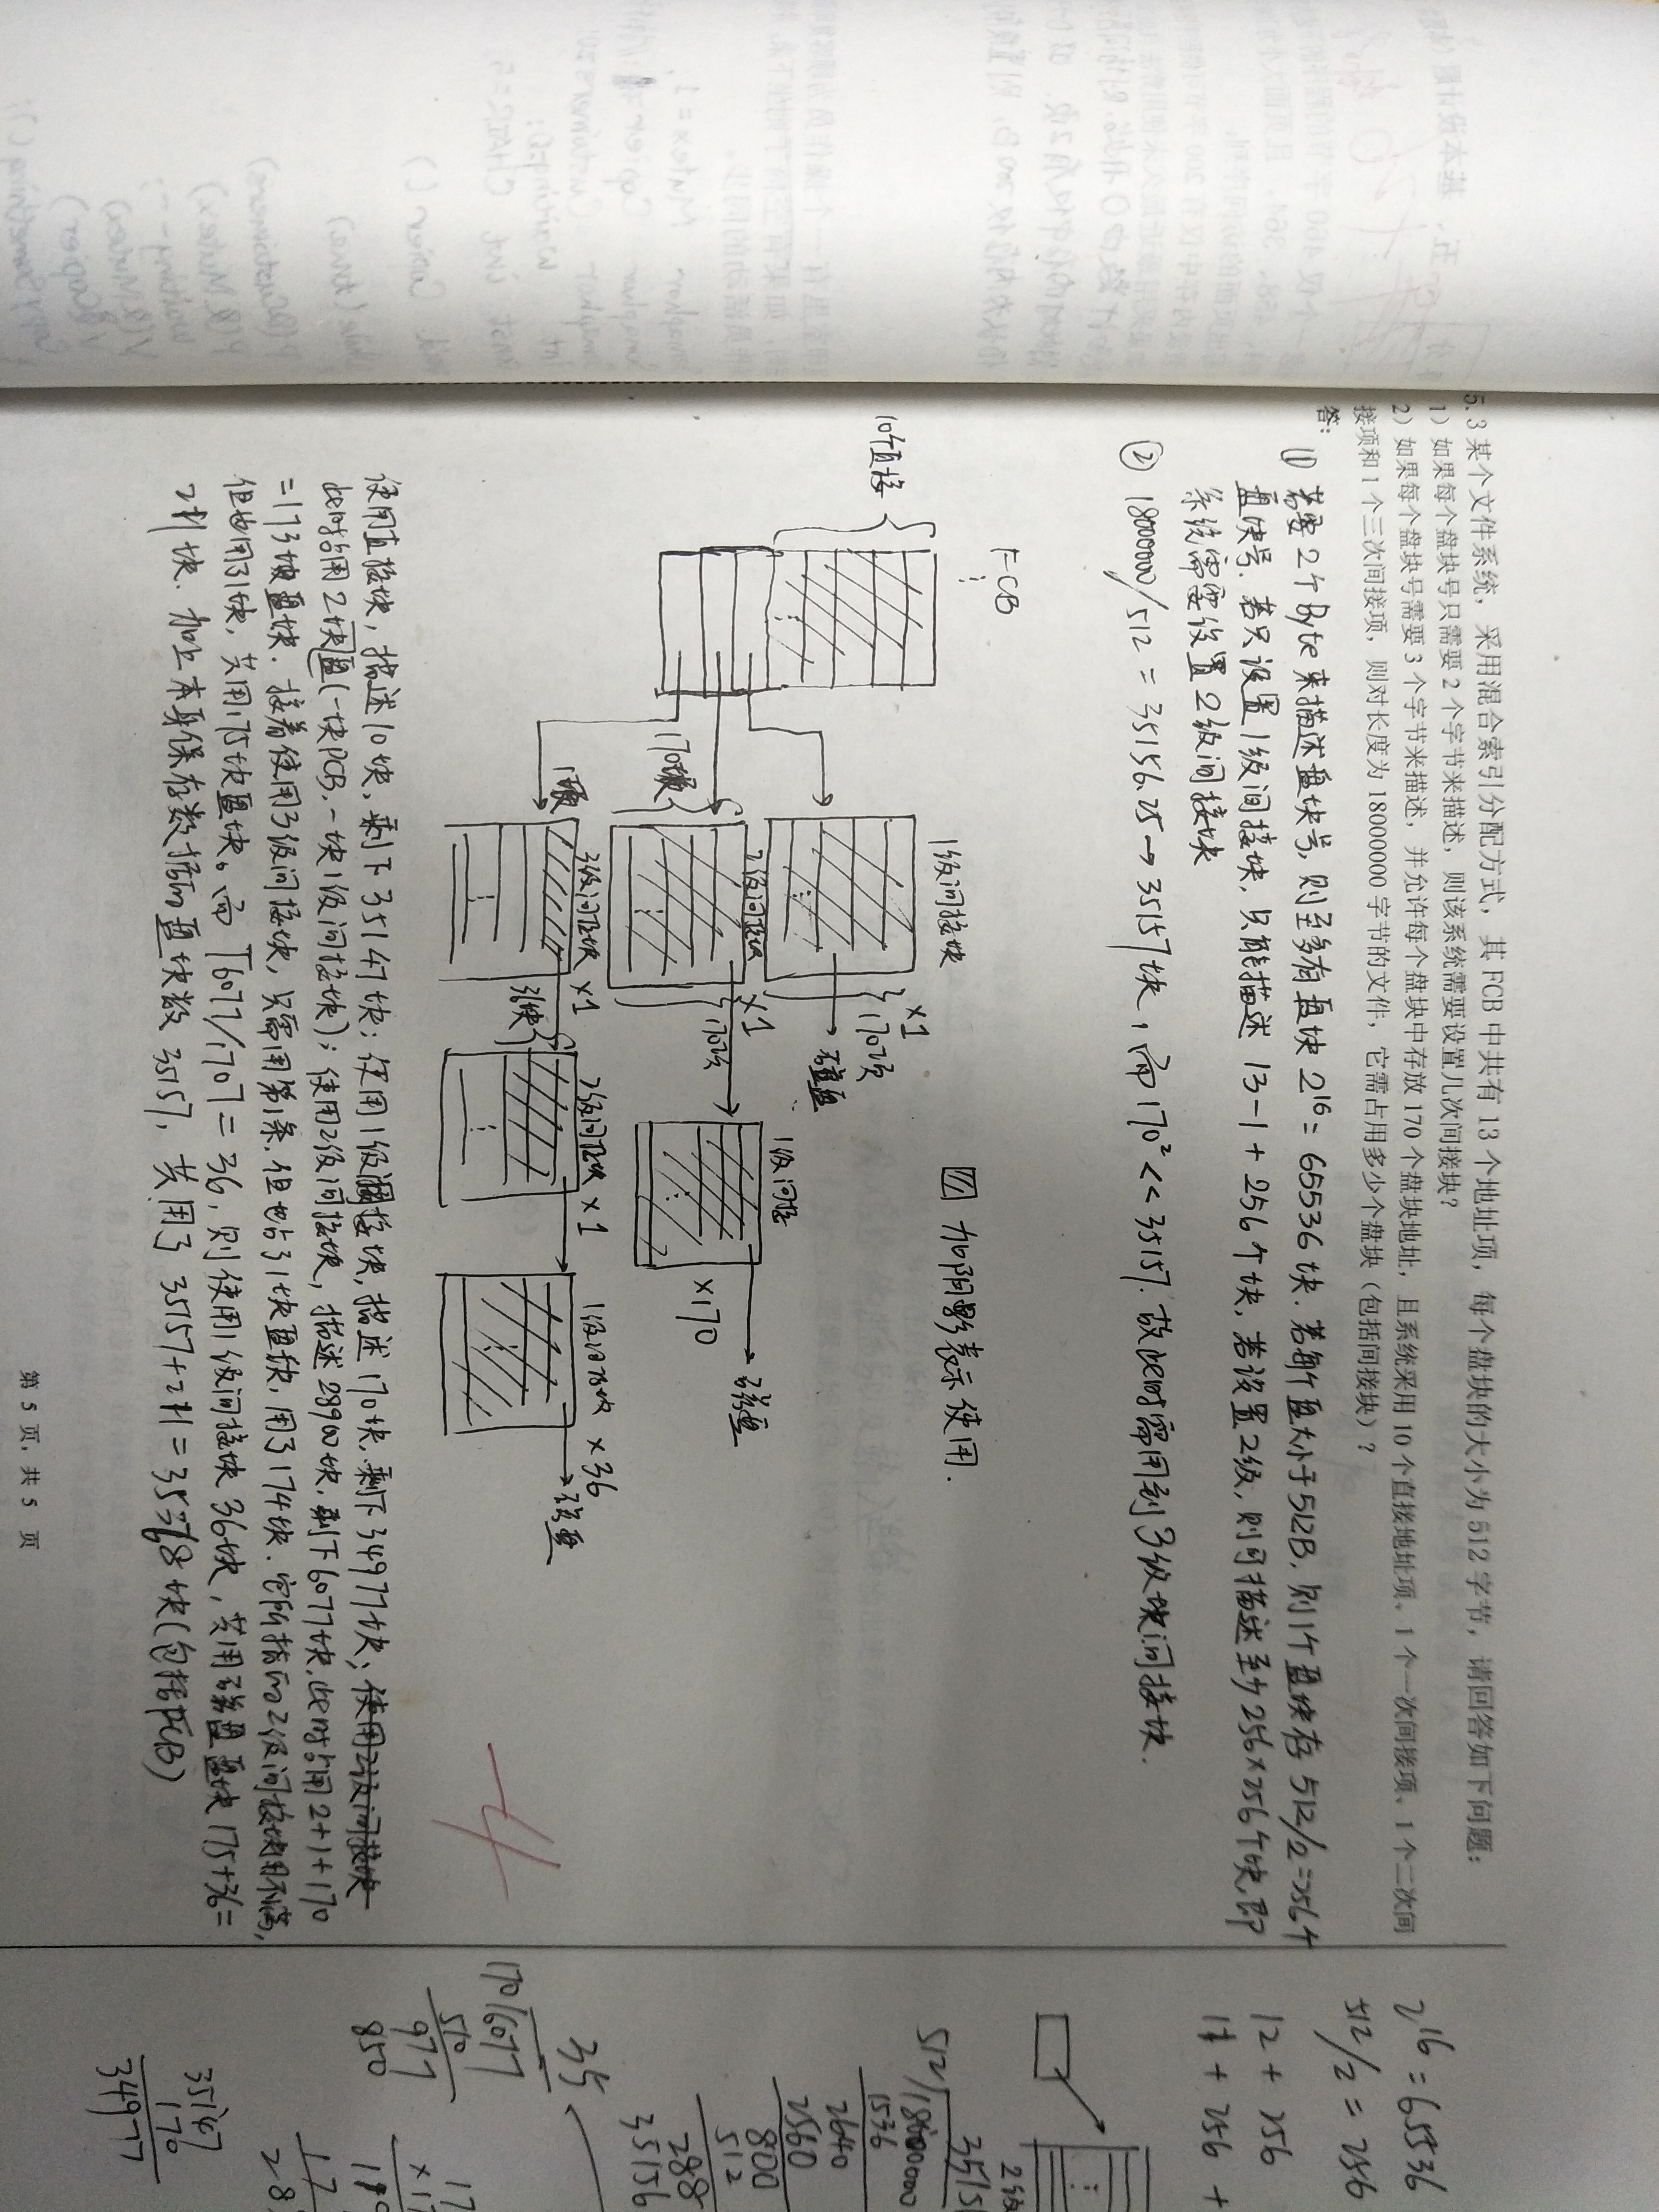 5.3 某个文件系统，采用混合索引分配方式，其 FCB 中共有 13 个地址项，每个盘块的大小为 512 字节，请回答如下问题：
1）如果每个盘块号只需要 2 个字节来描述，则该系统需要设置几次间接块？
2）如果每个盘块号需要 3 个字节来描述，并允许每个盘块中存放 170 个盘块地址，且系统采用 10 个直接地址项、1 个一次间接项、1 个二次间
接项和 1 个三次间接项，则对长度为 18000000 字节的文件，它需占用多少个盘块（包括间接块）？
答：
① 若要2个Byte来描述盘块号，则至多有盘块 2¹⁶ = 65536 块. 若每个盘大小于512B, 则1个盘块存 512/2=256个
盘块号. 若只设置1级间接块, 只能描述 13-1+256个块, 若设置2级, 则可描述至少256×256个块, 即
系统需要设置2级间接块
② 18000000/512 = 35156.25→35157块, 而170² << 35157. 故此时需用到3级块间接块.
FCB
⋮
10个直接
1级间接块
×1
170项
磁盘
加阴影表示使用.
2级间接块
×1
170项
1级间接
×170
磁盘
3级间接块 ×1
36块
2级间接块 ×1
1级间接块 ×36
磁盘
-4
使用直接块, 描述10块, 剩下35147块; 使用1级间接块, 描述170块, 剩下34977块; 使用2级间接块
此时占用2块盘(一块PCB, 一块1级间接块); 使用2级间接块, 描述28900块, 剩下6077块, 此时占用2+1+170
=173块盘块. 接着使用3级间接块, 只需用第1条, 但也占1块盘块, 用了174块. 它所指的2级间接块用不满,
但也用了1块, 共用175块盘块。而 ⌈6077/170⌉ = 36, 则使用1级间接块36块, 共用磁盘盘块175+36=
211块. 加上本身保存数据的盘块数 35157, 共用了 35157+211=35368块(包括FCB)
第 5 页, 共 5 页
2¹⁶ = 65536
512/2 = 256
12 + 256
11 + 256 +
512
18000000
1536
2640
2560
800
512
288
35156
35
170
6077
510
977
850
35147
170
34977